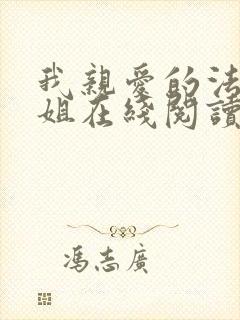 我親愛的法
姐在綫閱讀
馮志廣